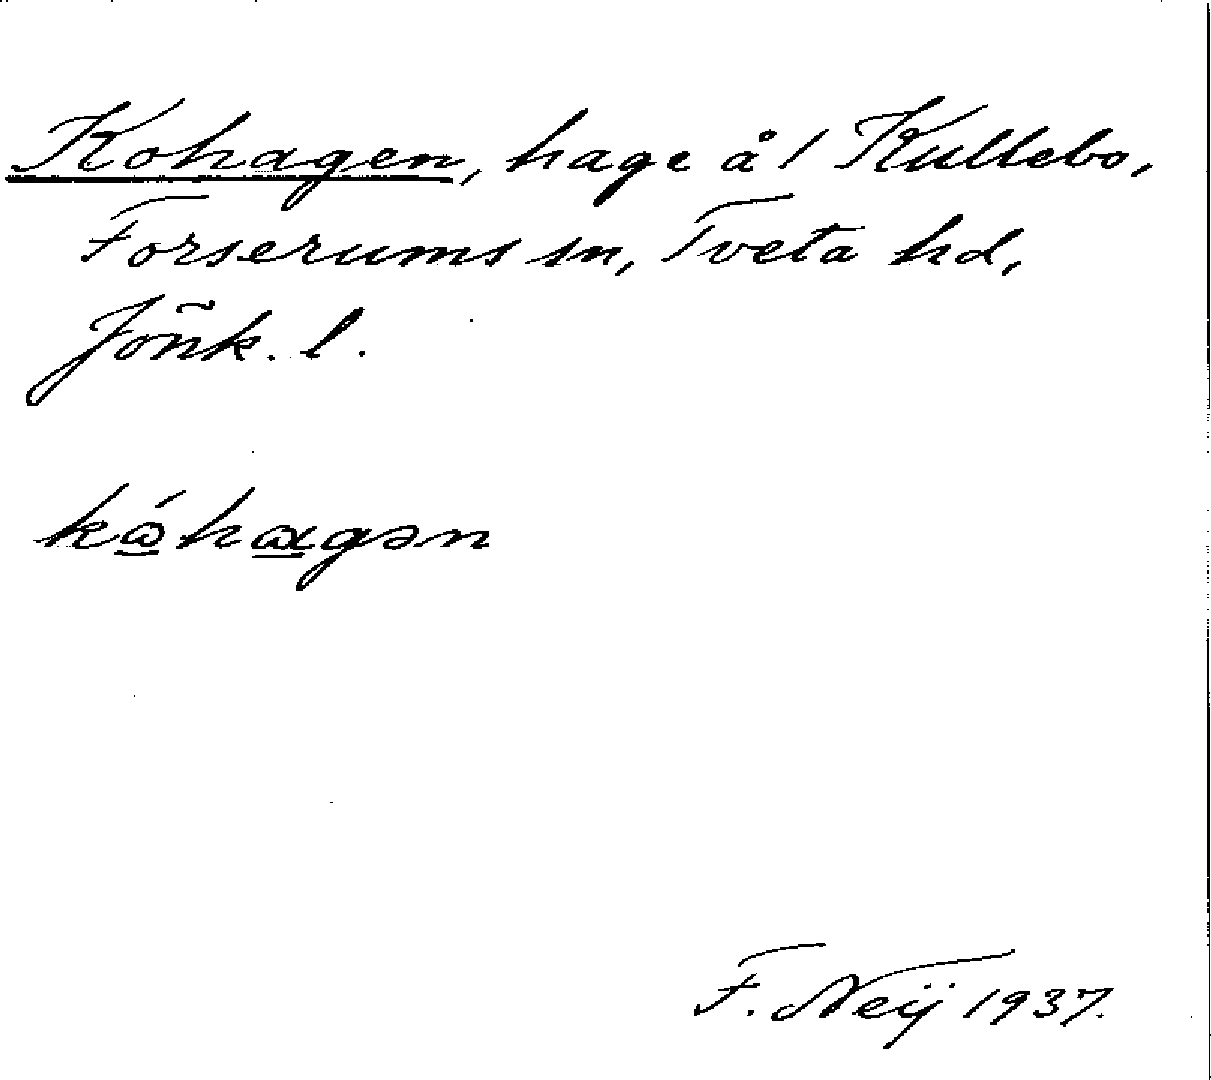 Kohagen, hage å 1 Kullebo,
Forserums sn, Tveta hd,
Jönk. l.
kώ̲hα̲gən
F. Neÿ 1937.